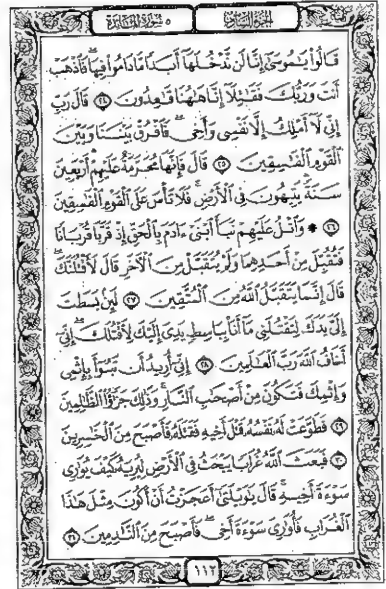 الجزء السادس ٥ سورة المائدة
قَالُوا۟ يَٰمُوسَىٰٓ إِنَّا لَن نَّدْخُلَهَآ أَبَدًا مَّا دَامُوا۟ فِيهَا ۖ فَٱذْهَبْ
أَنتَ وَرَبُّكَ فَقَٰتِلَآ إِنَّا هَٰهُنَا قَٰعِدُونَ ٢٤ قَالَ رَبِّ
إِنِّى لَآ أَمْلِكُ إِلَّا نَفْسِى وَأَخِى ۖ فَٱفْرُقْ بَيْنَنَا وَبَيْنَ
ٱلْقَوْمِ ٱلْفَٰسِقِينَ ٢٥ قَالَ فَإِنَّهَا مُحَرَّمَةٌ عَلَيْهِمْ ۛ أَرْبَعِينَ
سَنَةً ۛ يَتِيهُونَ فِى ٱلْأَرْضِ ۚ فَلَا تَأْسَ عَلَى ٱلْقَوْمِ ٱلْفَٰسِقِينَ
٢٦ ۞ وَٱتْلُ عَلَيْهِمْ نَبَأَ ٱبْنَىْ ءَادَمَ بِٱلْحَقِّ إِذْ قَرَّبَا قُرْبَانًا
فَتُقُبِّلَ مِنْ أَحَدِهِمَا وَلَمْ يُتَقَبَّلْ مِنَ ٱلْءَاخَرِ قَالَ لَأَقْتُلَنَّكَ ۖ
قَالَ إِنَّمَا يَتَقَبَّلُ ٱللَّهُ مِنَ ٱلْمُتَّقِينَ ٢٧ لَئِنۢ بَسَطتَ
إِلَىَّ يَدَكَ لِتَقْتُلَنِى مَآ أَنَا۠ بِبَاسِطٍ يَدِىَ إِلَيْكَ لِأَقْتُلَكَ ۖ إِنِّىٓ
أَخَافُ ٱللَّهَ رَبَّ ٱلْعَٰلَمِينَ ٢٨ إِنِّىٓ أُرِيدُ أَن تَبُوٓأَ بِإِثْمِى
وَإِثْمِكَ فَتَكُونَ مِنْ أَصْحَٰبِ ٱلنَّارِ ۚ وَذَٰلِكَ جَزَٰٓؤُا۟ ٱلظَّٰلِمِينَ
٢٩ فَطَوَّعَتْ لَهُۥ نَفْسُهُۥ قَتْلَ أَخِيهِ فَقَتَلَهُۥ فَأَصْبَحَ مِنَ ٱلْخَٰسِرِينَ
٣٠ فَبَعَثَ ٱللَّهُ غُرَابًا يَبْحَثُ فِى ٱلْأَرْضِ لِيُرِيَهُۥ كَيْفَ يُوَٰرِى
سَوْءَةَ أَخِيهِ ۚ قَالَ يَٰوَيْلَتَىٰٓ أَعَجَزْتُ أَنْ أَكُونَ مِثْلَ هَٰذَا
ٱلْغُرَابِ فَأُوَٰرِىَ سَوْءَةَ أَخِى ۖ فَأَصْبَحَ مِنَ ٱلنَّٰدِمِينَ ٣١
١١٢